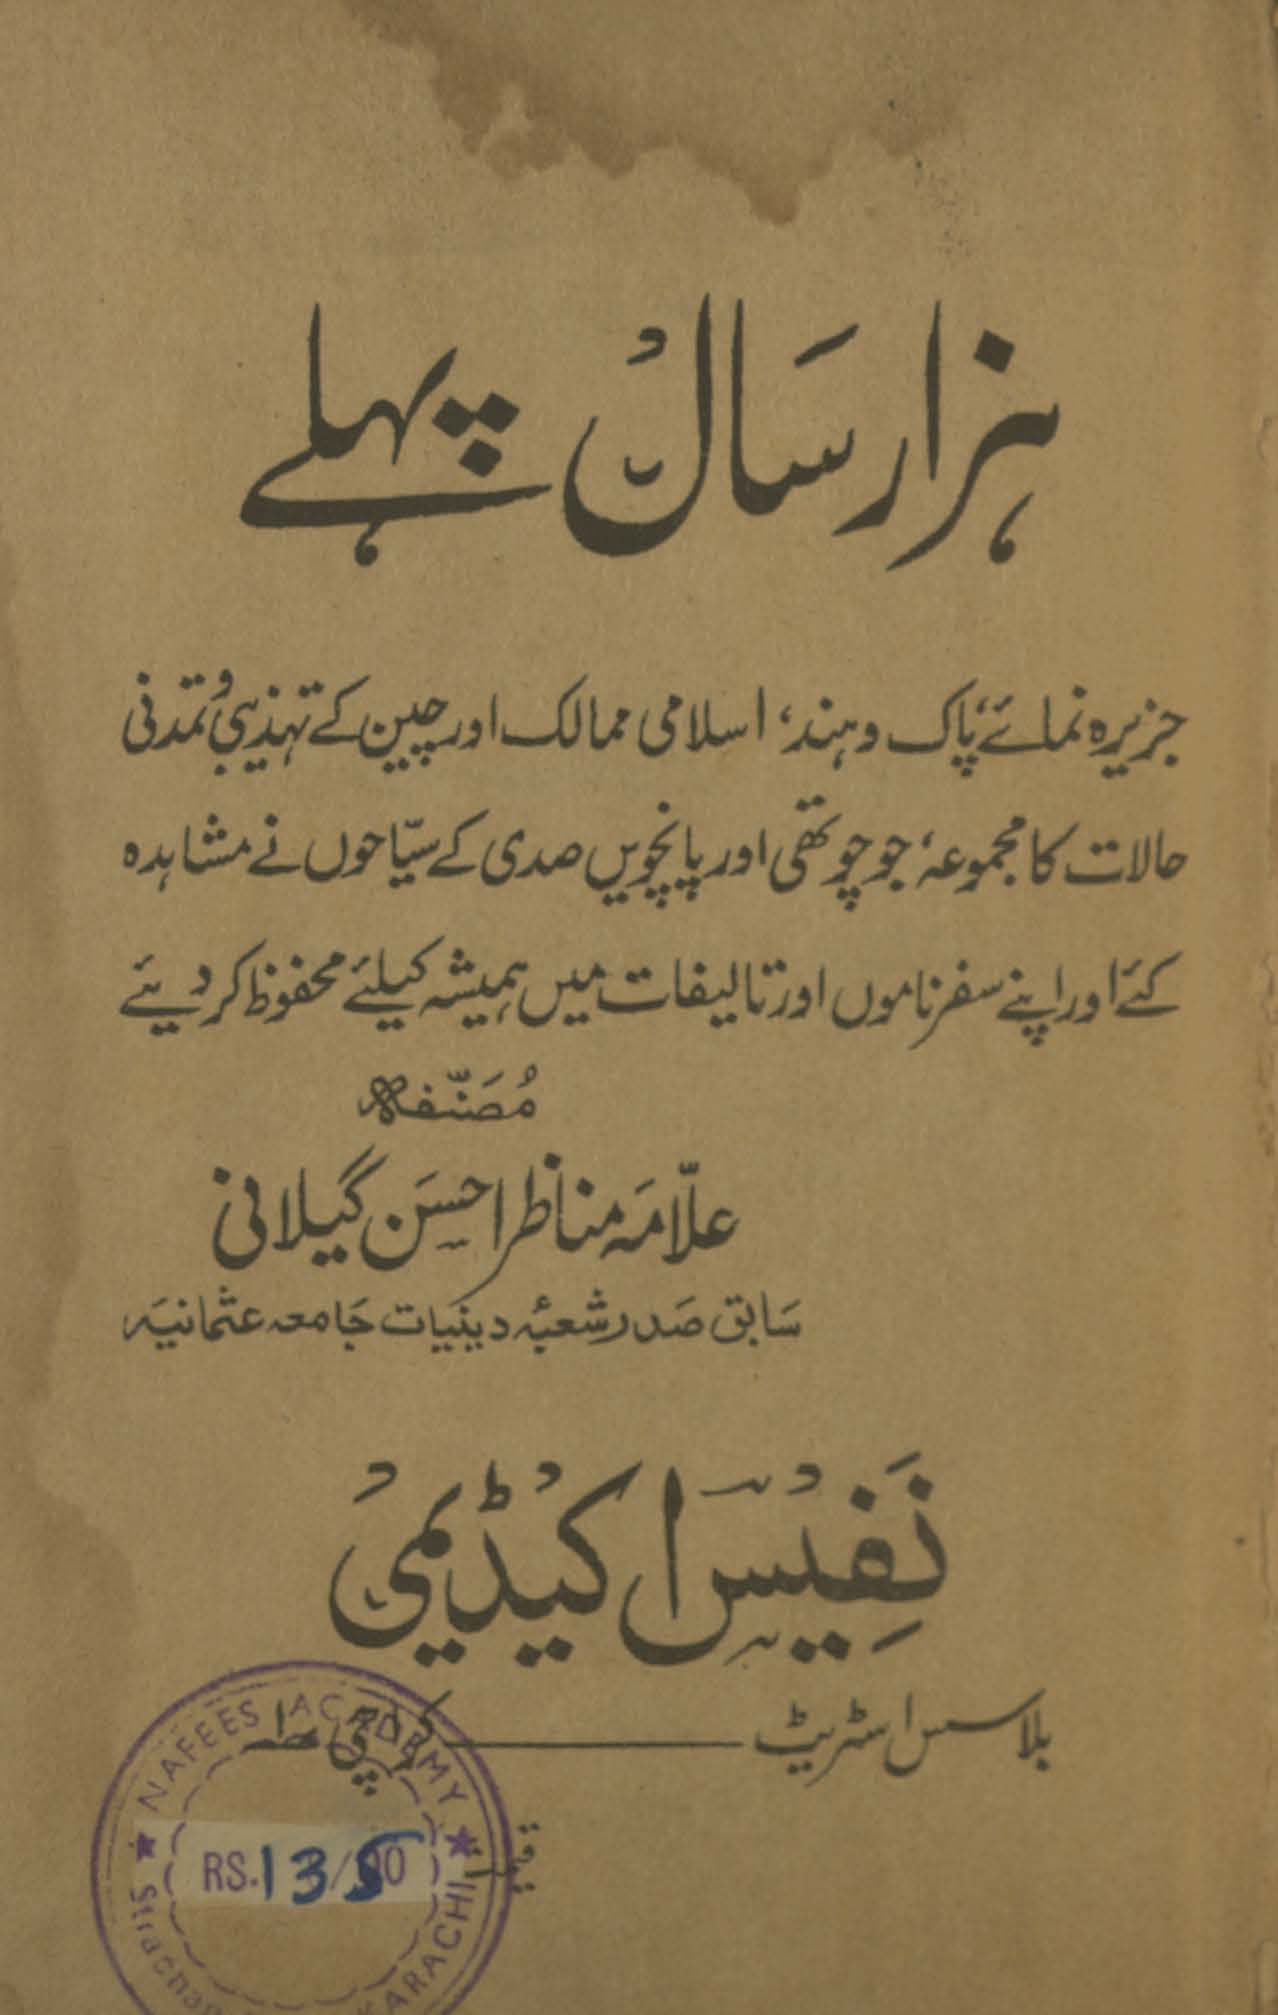 ہزار سال پہلے
جزیرہ نمائے پاک و ہند، اسلامی ممالک اور چین کے تہذیبی و تمدنی
حالات کا مجموعہ، جو چوتھی اور پانچویں صدی کے سیّاحوں نے مشاہدہ
کئے اور اپنے سفرناموں اور تالیفات میں ہمیشہ کیلئے محفوظ کر دیئے
مُصَنّفہ
علّامَہ مناظر احسَن گیلانی
سَابق صَدر شعبۂ دینیات جَامعہ عثمانیَہ
نَفِیسْ اکیڈیمیْ
بلاسس اسٹریٹ ـــــ کراچی ۱
قیمت
NAFEES ACADEMY
RS. 135/00
Strachan
KARACHI